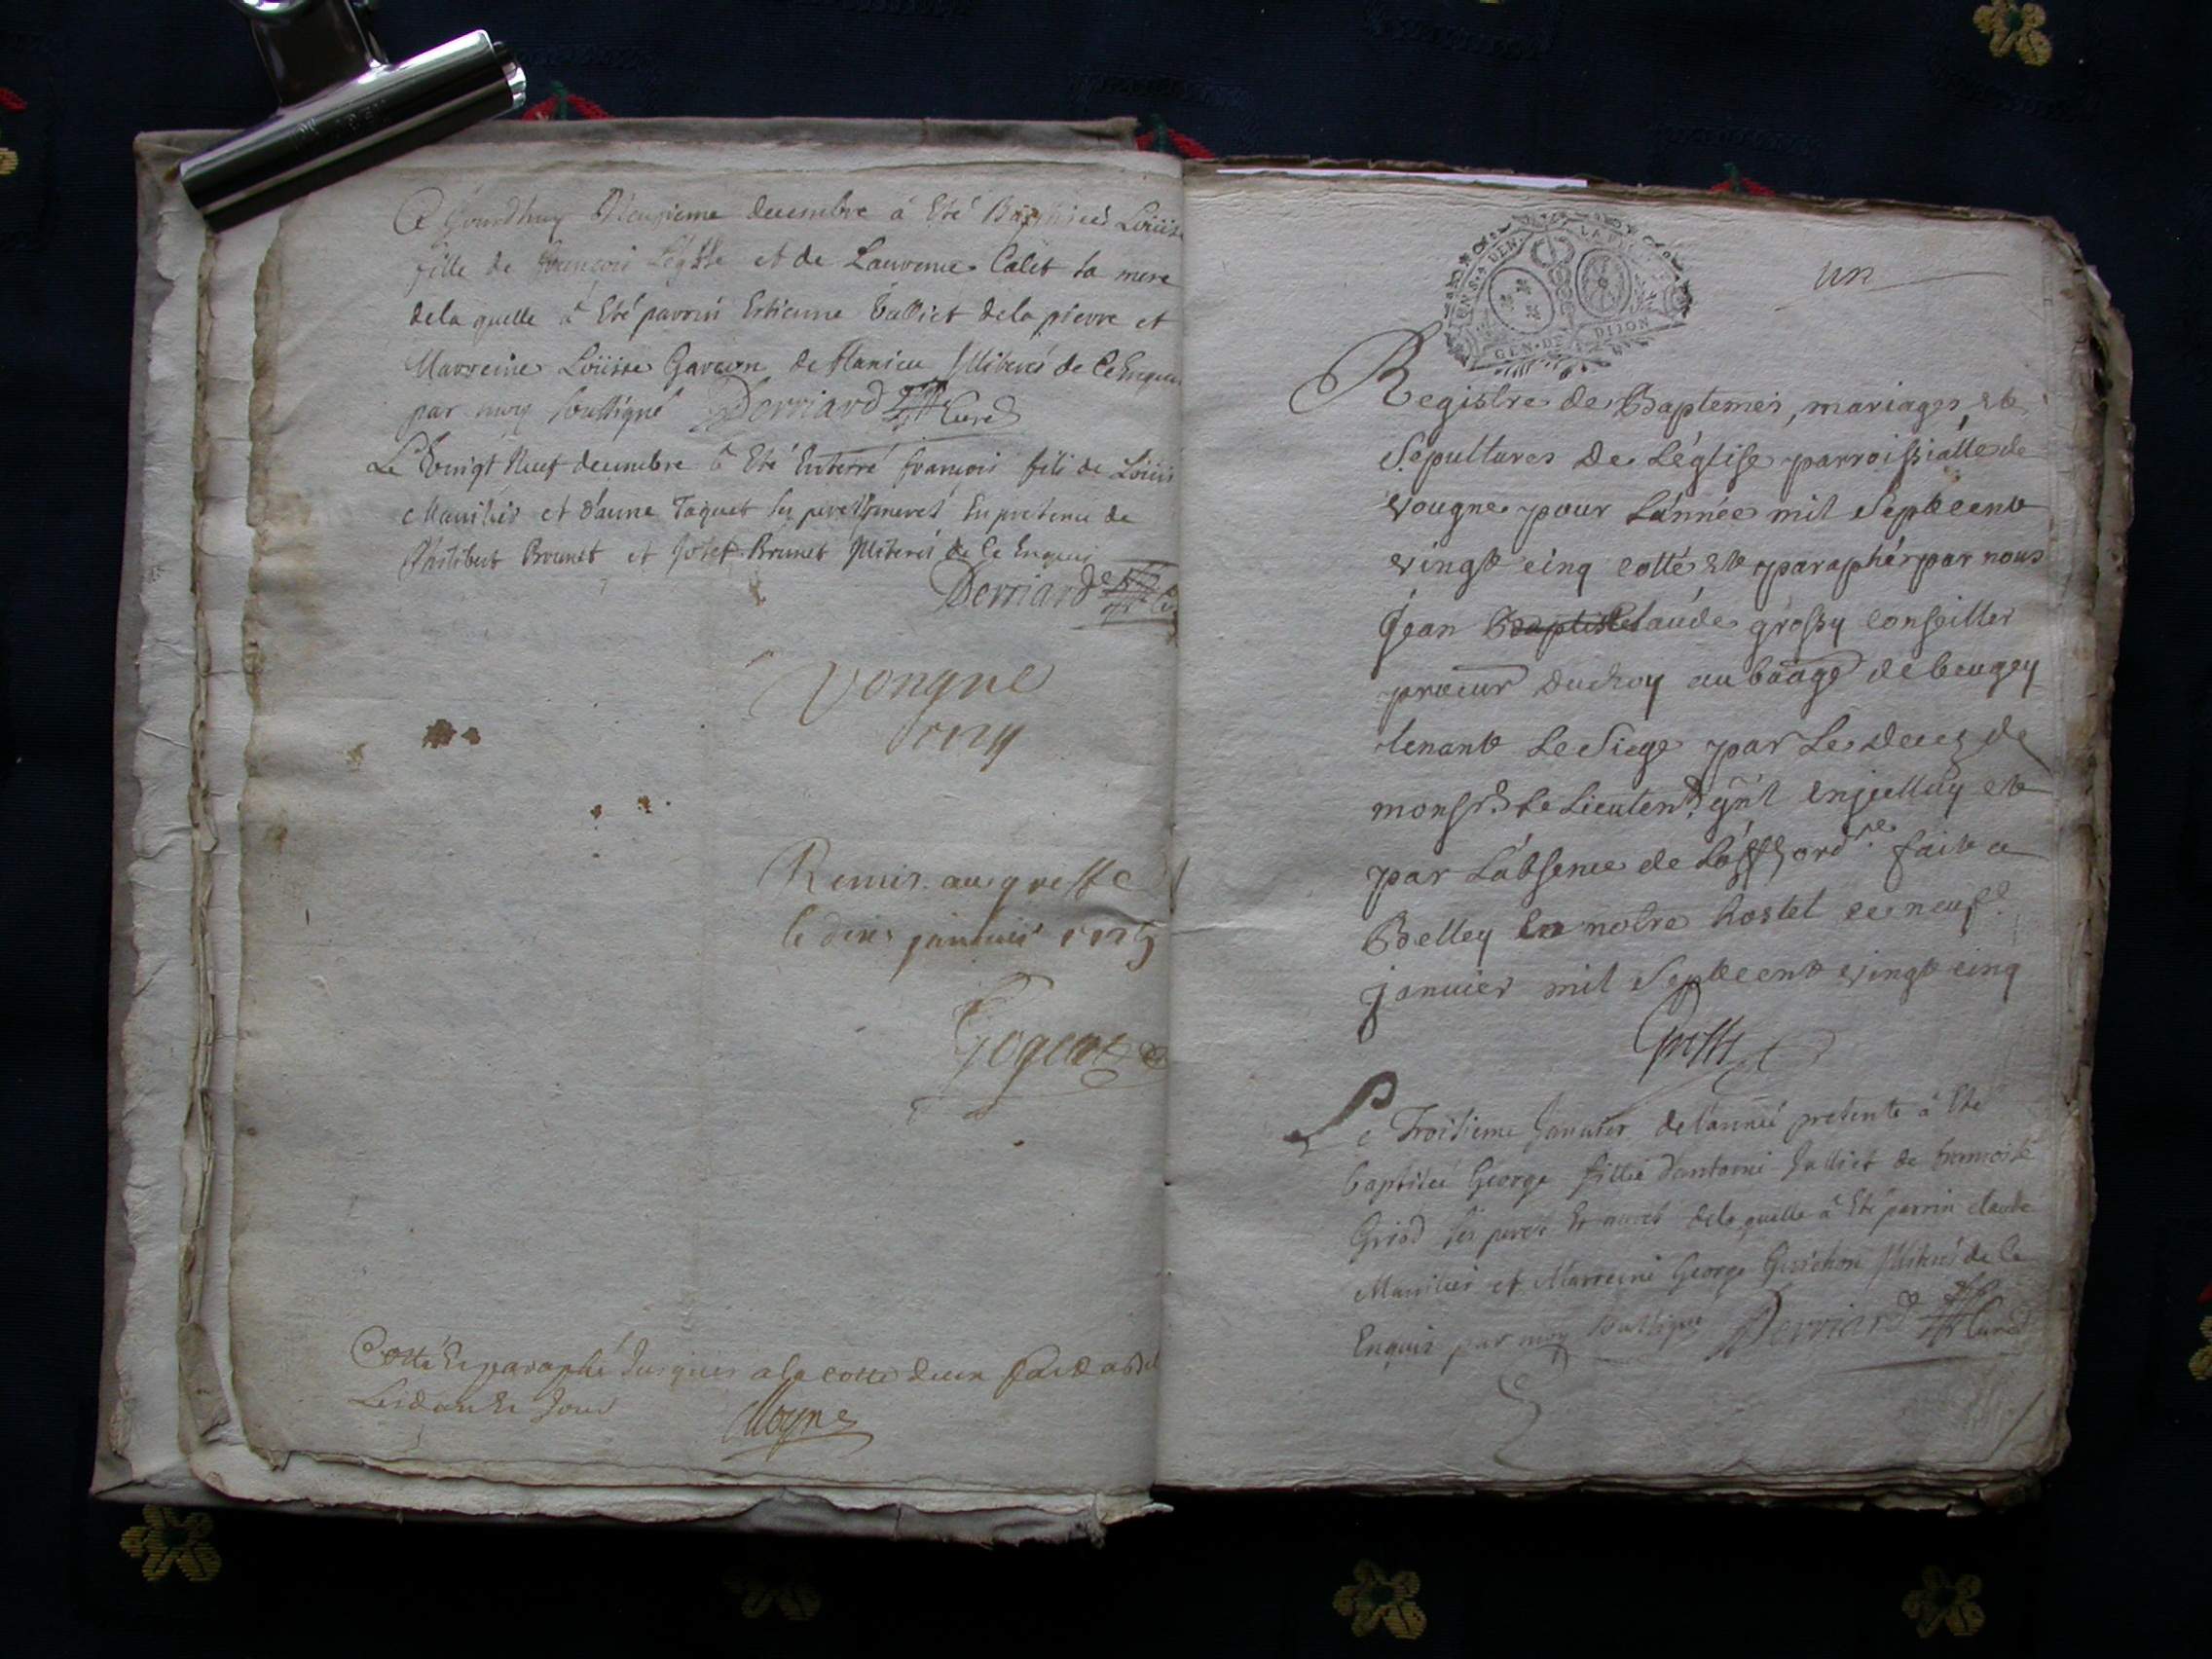 Ce Jourdhuy Neufieme decembre â Eté Baptiseé Loüise
fille de francois et de Laurence Calet sa mere
dela quelle â Eté parrin Estienne Julliet dela pierre et
Marreine Loüise de flaxieu Illiterés de Ce Enquis
par moy soussigné Derriard Curé
Le Vingt Neuf decembre â Eté Enterré françois fils de Loüis
et d'anne Taquet ses pere Et mere En presence de
Philibert Brunet et Josef Brunet Illiterés de Ce Enquis
Derriard
Vongne
Remis au greffe
le dixe janvier 1725
Cotté Et paraphé Jusques a la cotte deux fait a
Lesd an Et Jour Moyne
GEN. DE DIJON
un
Registre de Baptemes, mariages, et
Sepultures de L'église parroissialle de
vougne pour L'année mil Septcent
vingt cinq cotté et paraphé par nous
Jean Baptiste Claude grossy conseiller
procur du Roy au baage de beugey
tenant Le Siege par Le deces de
monsr. Le Lieutent. gñl en jcelluy et
par L'absence de Laff ordre. fait a
Belley en notre hostel ce neufe.
janvier mil Septcent vingt cinq
Grossy
Le Troisieme Janvier de l'anneé presente â Eté
baptiseé George fillie d'antoine Julliet de francoise
Griod ses pere Et mere dela quelle â Eté parrin claude
et Marreine George Guichon Illiterés de Ce
Enquis par moy soussigné Derriard Curé